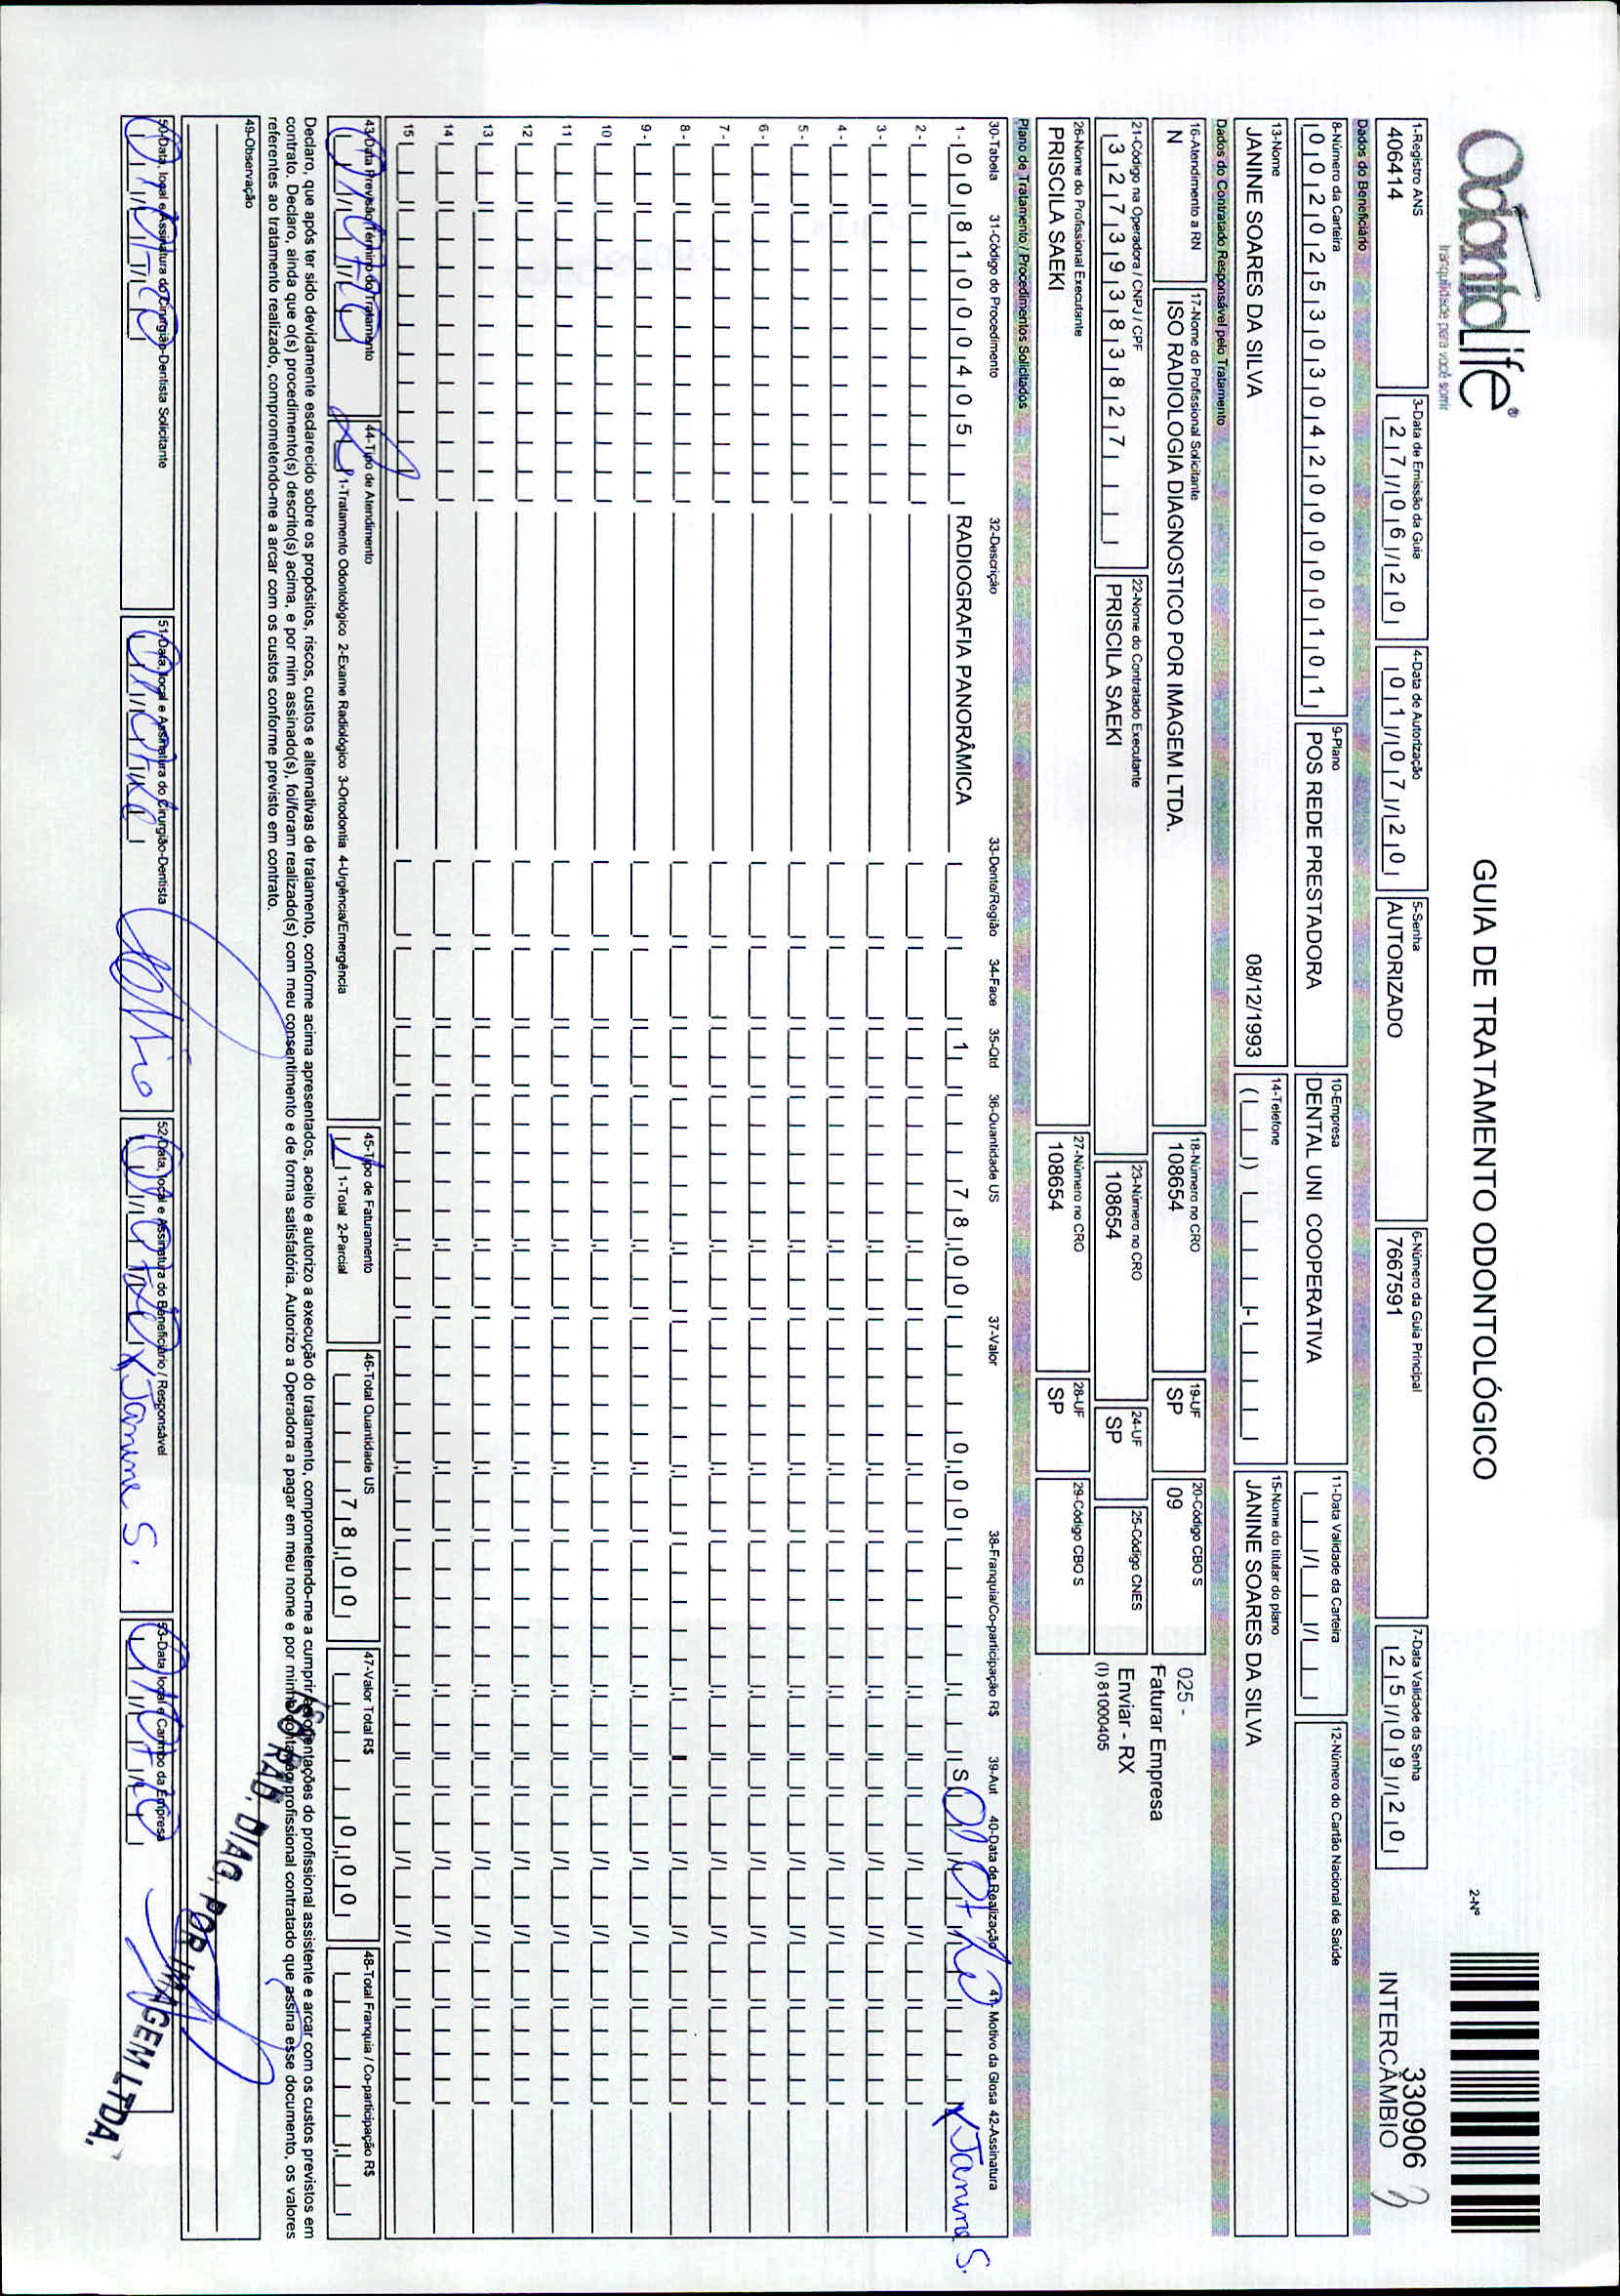 OdontoLife®
tranquilidade para você sorrir
GUIA DE TRATAMENTO ODONTOLÓGICO
2-Nº
330906
INTERCÂMBIO
3
1-Registro ANS
406414
3-Data de Emissão da Guia
27/06/20
4-Data de Autorização
01/07/20
5-Senha
AUTORIZADO
6-Número da Guia Principal
7667591
7-Data Validade da Senha
25/09/20
Dados do Beneficiário
8-Número da Carteira
00202530304200000101
9-Plano
POS REDE PRESTADORA
10-Empresa
DENTAL UNI COOPERATIVA
11-Data Validade da Carteira
12-Número do Cartão Nacional de Saúde
13-Nome
JANINE SOARES DA SILVA 08/12/1993
14-Telefone
15-Nome do titular do plano
JANINE SOARES DA SILVA
Dados do Contratado Responsável pelo Tratamento
16-Atendimento a RN
N
17-Nome do Profissional Solicitante
ISO RADIOLOGIA DIAGNOSTICO POR IMAGEM LTDA.
18-Número no CRO
108654
19-UF
SP
20-Código CBO S
09
025 -
Faturar Empresa
Enviar - RX
(I) 81000405
21-Código na Operadora / CNPJ / CPF
32739383827
22-Nome do Contratado Executante
PRISCILA SAEKI
23-Número no CRO
108654
24-UF
SP
25-Código CNES
26-Nome do Profissional Executante
PRISCILA SAEKI
27-Número no CRO
108654
28-UF
SP
29-Código CBO S
Plano de Tratamento / Procedimentos Solicitados
30-Tabela 31-Código do Procedimento 32-Descrição 33-Dente/Região 34-Face 35-Qtd 36-Quantidade US 37-Valor 38-Franquia/Co-participação R$ 39-Aut 40-Data de Realização 41- Motivo da Glosa 42-Assinatura
1- 00 81000405 RADIOGRAFIA PANORÂMICA 1 78,00 0,00 S 01 07 20 X Janine S.
2-
3-
4-
5-
6-
7-
8-
9-
10
11
12
13
14
15
43-Data Prevista Término do Tratamento
01 07 20
44-Tipo de Atendimento
1-Tratamento Odontológico 2-Exame Radiológico 3-Ortodontia 4-Urgência/Emergência
45-Tipo de Faturamento
1-Total 2-Parcial
46-Total Quantidade US
78,00
47-Valor Total R$
0,00
48-Total Franquia / Co-participação R$
Declaro, que após ter sido devidamente esclarecido sobre os propósitos, riscos, custos e alternativas de tratamento, conforme acima apresentados, aceito e autorizo a execução do tratamento, comprometendo-me a cumprir as orientações do profissional assistente e arcar com os custos previstos em
contrato. Declaro, ainda que o(s) procedimento(s) descrito(s) acima, e por mim assinado(s), foi/foram realizado(s) com meu consentimento e de forma satisfatória. Autorizo a Operadora a pagar em meu nome e por minha conta, ao profissional contratado que assina esse documento, os valores
referentes ao tratamento realizado, comprometendo-me a arcar com os custos conforme previsto em contrato.
49-Observação
ISO RAD. DIAG. POR IMAGEM LTDA.
50-Data, local e Assinatura do Cirurgião-Dentista Solicitante
01 07 20
51-Data, local e Assinatura do Cirurgião-Dentista
01 07 20
52-Data, local e Assinatura do Beneficiário / Responsável
01 07 20 X Janine S.
53-Data, local e Carimbo da Empresa
01 07 20